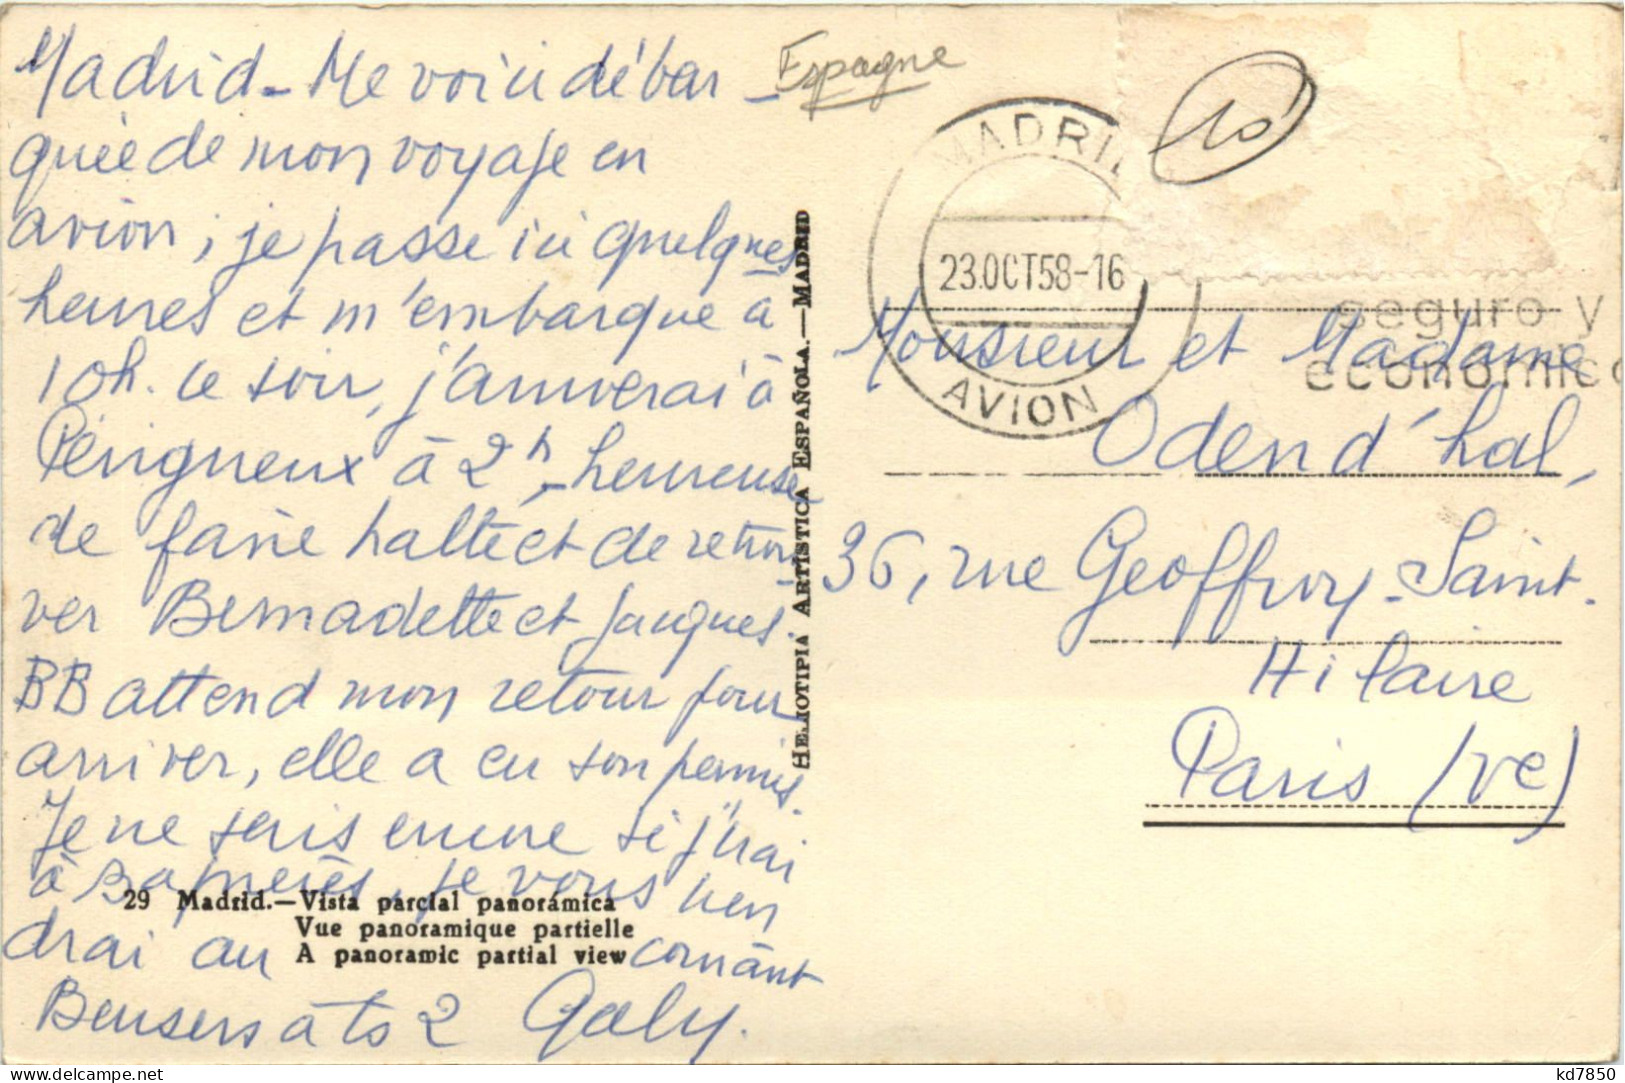 Madrid - Me voici débar -
quée de mon voyage en
avion, je passe ici quelques
heures et m'embarque à
10h. ce soir, j'arriverai à
Périgueux à 2h, - heureuse
de faire halte et de retrou-
ver Bernadette et Jacques.
BB attend mon retour pour
arriver, elle a eu son permis.
Je ne sais encore si j'irai
à je vous tien
drai au courant
Bensers à ts 2 Galy.
29 Madrid.—Vista parcial panorámica
Vue panoramique partielle
A panoramic partial view
HELIOTIPIA ARTÍSTICA ESPAÑOLA.—MADRID
Espagne
MADRID
23.OCT58-16
AVION
10
seguro y
economico
Monsieur et Madame
Oden d'hal,
36, rue Geoffroy-Saint-
Hilaire
Paris (Ve)
www.delcampe.net
kd7850